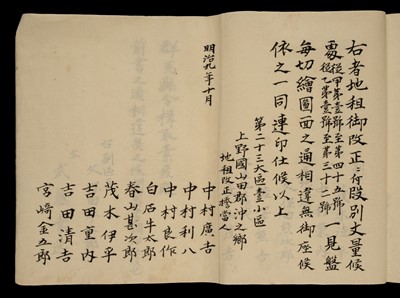 右者地租御改正ニ付段別丈量候
處従甲第壹號至第四十五號
従乙第壹號至第三十二號一見盤
毎切繪圖面之通相違無御座候
依之一同連印仕候以上
第二十三大區壹小區
上野國山田郡沖之郷
地租改正擔當人
明治九年十月
中村廣吉
中村利八
中村良作
白石牛太郎
春山甚次郎
茂木伊平
吉田重内
吉田清吉
宮﨑金五郎